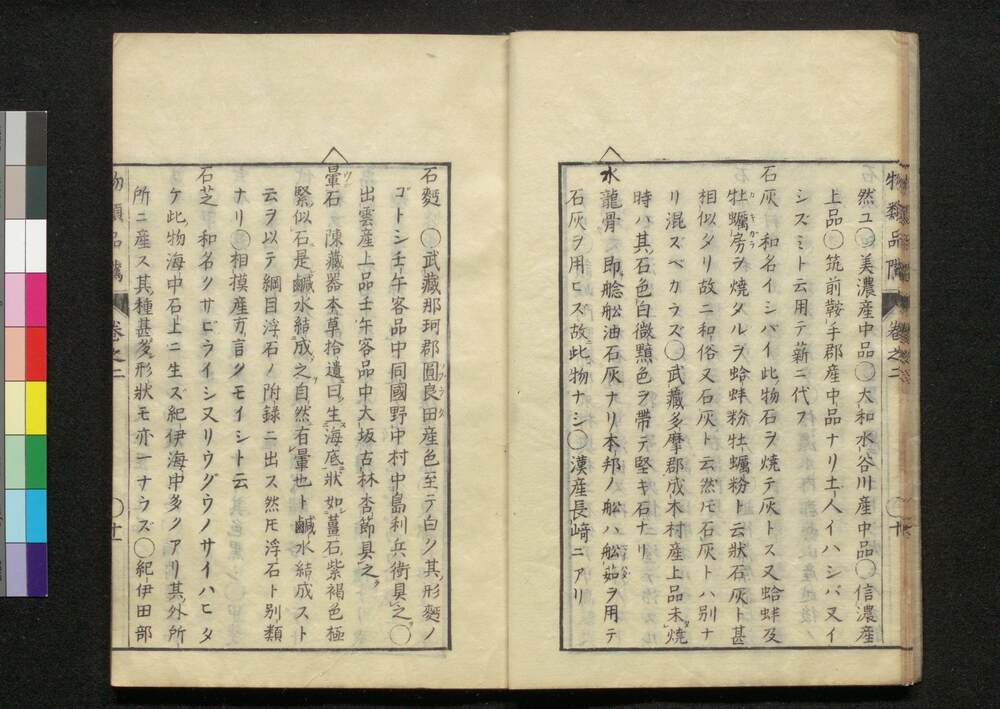 物類品隲 巻之二 〇十
然ユ〇美濃産中品〇大和水谷川産中品〇信濃産
上品〇筑前鞍手郡産中品ナリ土人イハシバ又イ
シズミト云用テ薪ニ代フ
石灰 和名イシバイ此物石ヲ焼テ灰トス又蛤蚌及
牡蠣房ヲ焼タルヲ蛤蚌粉牡蠣粉ト云状石灰ト甚
相似タリ故ニ和俗又石灰ト云然𪜈石灰トハ別ナ
リ混ズベカラズ〇武藏多摩郡成木村産上品未焼
時ハ其石色白微黧色ヲ帶テ堅キ石ナリ
水龍骨 即艌舩油石灰ナリ本邦ノ舩ハ舩茹ヲ用テ
石灰ヲ用ヒズ故此物ナシ〇漢産長﨑ニアリ
石麪 〇武藏那珂郡圓良田産色至テ白ク其形麪ノ
ゴトシ壬午客品中同國野中村中島利兵衛具之〇
出雲産上品壬午客品中大坂古林杏節具之
暈石 陳藏器本草拾遺曰生海底狀如薑石紫褐色極
緊似石是鹹水結成之自然有暈也ト鹹水結成スト
云ヲ以テ綱目浮石ノ附録ニ出ス然𪜈浮石ト别類
ナリ〇相摸産方言クモイシト云
石芝 和名クサビライシ又リウグウノサイハヒタ
ケ此物海中石上ニ生ズ紀伊海中多クアリ其外所
所ニ産ス其種甚多形狀モ亦一ナラズ〇紀伊田部
物類品隲 巻之二 〇十一